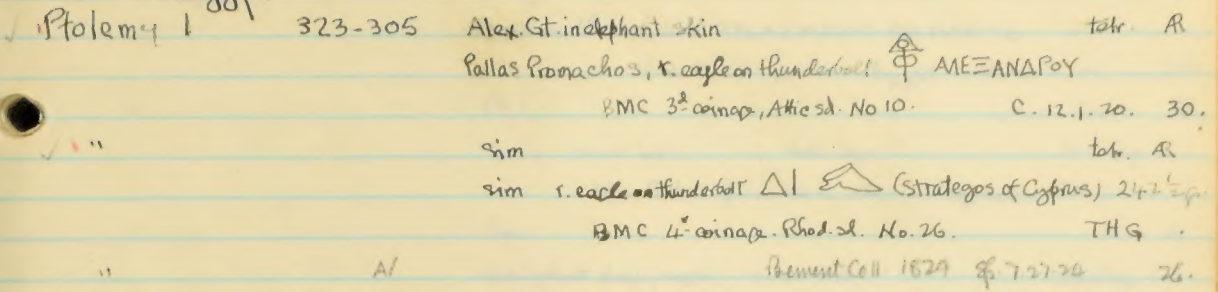 001
Ptolemy 1 323-305 Alex. Gt. in elephant skin tetr. AR
Pallas Promachos, r. eagle on thunderbolt ΑΛΕΞΑΝΔΡΟΥ
BMC 3d coinage, Attic sd. No 10. C. 12.1.20. 30.
" sim tetr. AR
sim r. eagle on thunderbolt ΔΙ (strategos of Cyprus) 242½
BMC 4th coinage. Rhod. sd. No. 26. THG .
" A/ Bement Coll 1829 7.27.24 26.